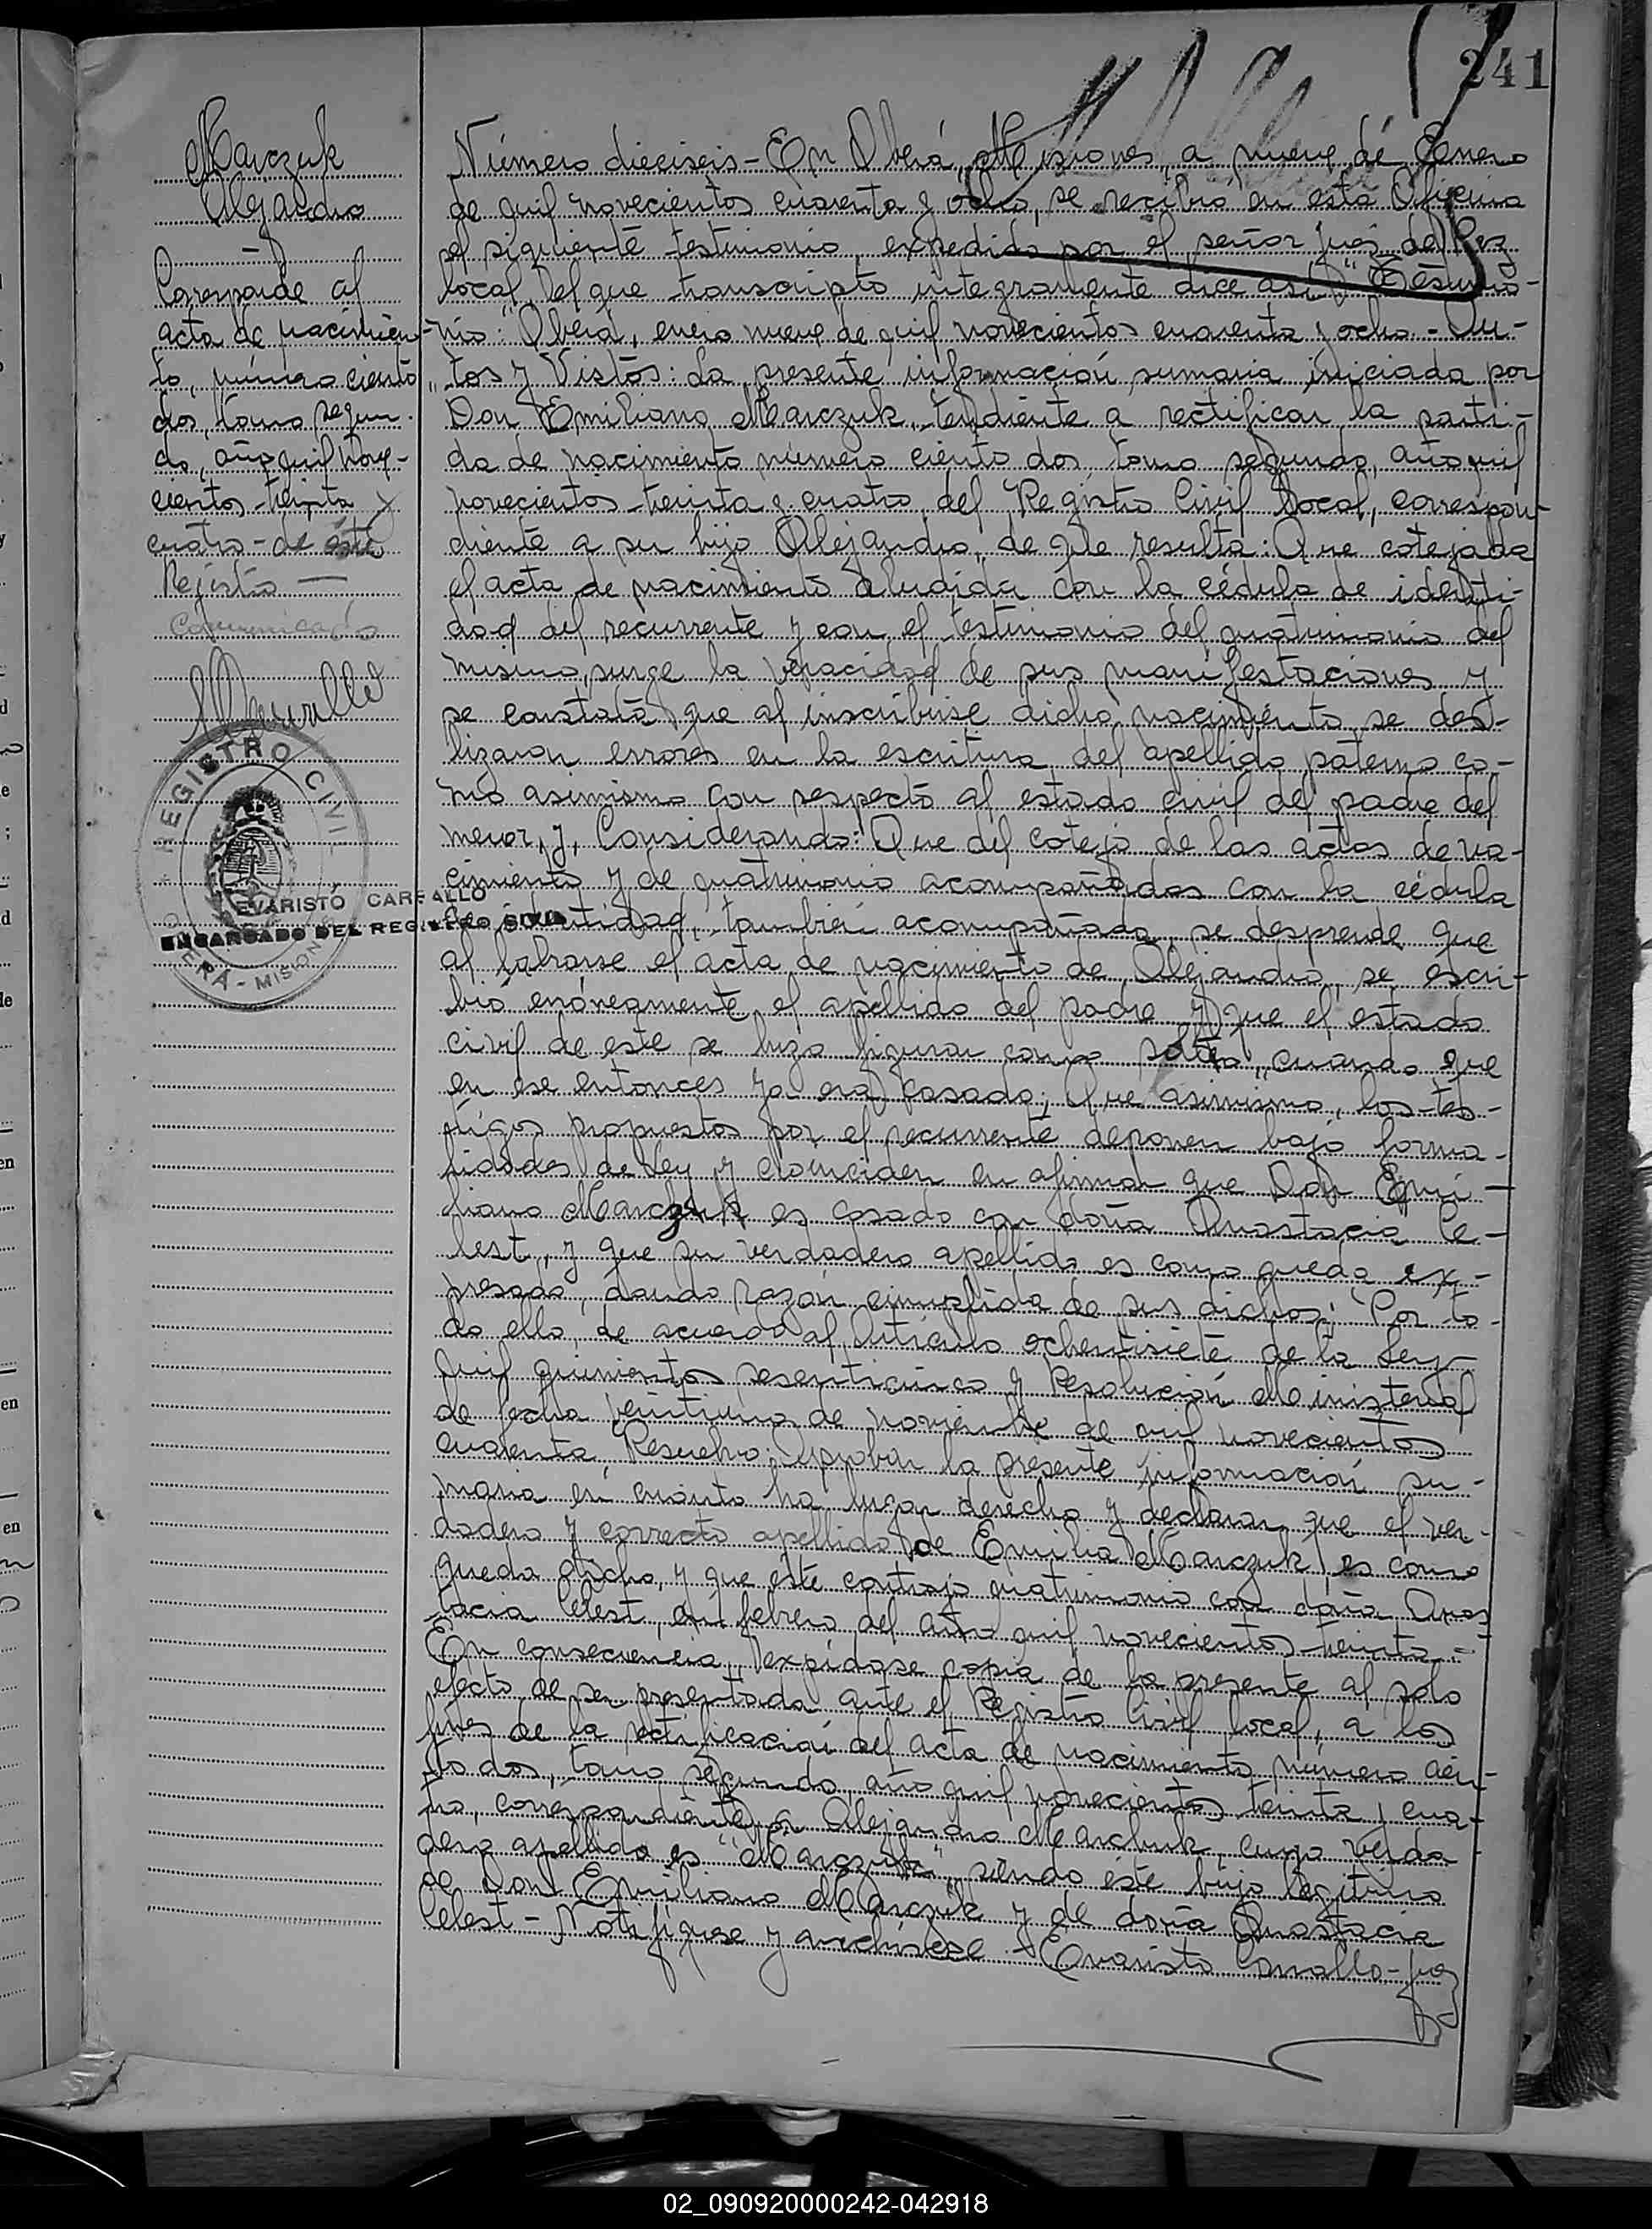 241
Marczuk
Alejandro
Corresponde al
acta de nacimien-
to, número ciento
dos, tomo segun-
do, año mil nove-
cientos treinta y
cuatro - de éste
Rejistro —
Comunicado
REGISTRO CIVIL
OBERÁ - MISIONES
EVARISTO CARFALLO
ENCARGADO DEL REGISTRO CIVIL
Número dieciseis - En Oberá, Misiones, a nueve de Enero
de mil novecientos cuarenta y ocho, se recibió en esta Oficina
el siguiente testimonio, expedido por el señor juez de Paz
local, el que transcripto integramente dice así: "Testimo-
nio: "Oberá, enero nueve de mil novecientos cuarenta y ocho - Au-
"tos y Vistos: La presente información sumaria iniciada por
Don Emiliano Marczuk, tendiente a rectificar la parti-
da de nacimiento número ciento dos, tomo segundo, año mil
novecientos treinta y cuatro del Registro Civil local, correspon-
diente a su hijo Alejandro, de que resulta: Que cotejada
el acta de nacimiento aludida con la cédula de identi-
dad del recurrente y con el testimonio del matrimonio del
mismo, surge la veracidad de sus manifestaciones y
se constata que al inscribirse dicho nacimiento se des-
lizaron errores en la escritura del apellido paterno co-
mo asimismo con respecto al estado civil del padre del
menor, y, Considerando: Que del cotejo de las actas de na-
cimiento y de matrimonio acompañadas con la cédula
de identidad, también acompañada, se desprende que
al labrarse el acta de nacimiento de Alejandro, se escri-
bió erróneamente el apellido del padre y que el estado
civil de este se hizo figurar como soltero, cuando que
en ese entonces ya era casado; Que asimismo, los tes-
tigos propuestos por el recurrente deponen bajo forma-
lidades de Ley y coinciden en afirmar que Don Emi-
liano Marczuk es casado con doña Anastacia Ce-
lest, y que su verdadero apellido es como queda ex-
presado, dando razón cumplida de sus dichos; Por to-
do ello, de acuerdo al Artículo ochentisiete de la Ley
mil quinientos sesenticinco y Resolución Ministerial
de fecha veintiuno de noviembre de mil novecientos
cuarenta, Resuelvo: Aprobar la presente información su-
maria en cuanto ha lugar derecho y declarar que el ver-
dadero y correcto apellido de Emilia Marczuk, es como
queda dicho, y que éste contrajo matrimonio con doña Anas
tacia Celest, en febrero del año mil novecientos treinta.-
En consecuencia, expídase copia de la presente al solo
efecto de ser presentada ante el Registro Civil local, a los
fines de la rectificación del acta de nacimiento número cien-
to dos, tomo segundo, año mil novecientos treinta y cua-
tro, correspondiente a Alejandro Marchuk, cuyo verda-
dero apellido es "Marczuk", siendo éste hijo legítimo
de Don Emiliano Marczuk y de doña Anastacia
Celest - Notifíquese y archívese - Evaristo Carvallo - juez
02_090920000242-042918